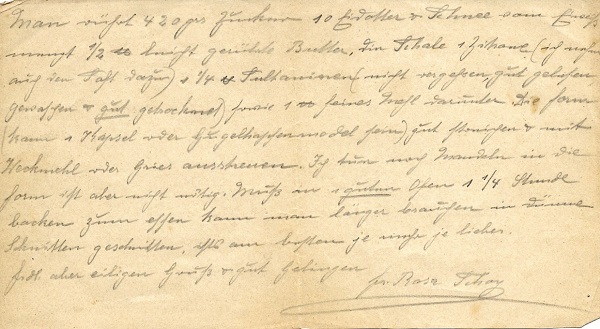 Man rührt 420 grs Zucker 10 Eidotter & Schnee vom Eiweiß
mengt 1/2 ℔ leicht gerührte Butter, die Schale 1 Zitrone (ich nehm
auch den Saft dazu) 1 1/4 ℔ Sultaninen (nicht vergessen gut gelesen
gewaschen & gut getrocknet) sowie 1 ℔ feines Mehl darunter. Die form
(kann 1 Kapsel oder Gugelhopfenmodel sein) gut streichen & mit
Weckmehl oder Gries ausstreuen. Ich tue noch Mandeln in die
form ist aber nicht nötig. Muß in 1 guten Ofen 1 1/4 Stunde
backen zum essen kann man länger brauchen in dünne
Schnitten geschnitten, ists am besten je mehr je lieber.
aber eiligen Gruß & gut Gelingen
Rosa